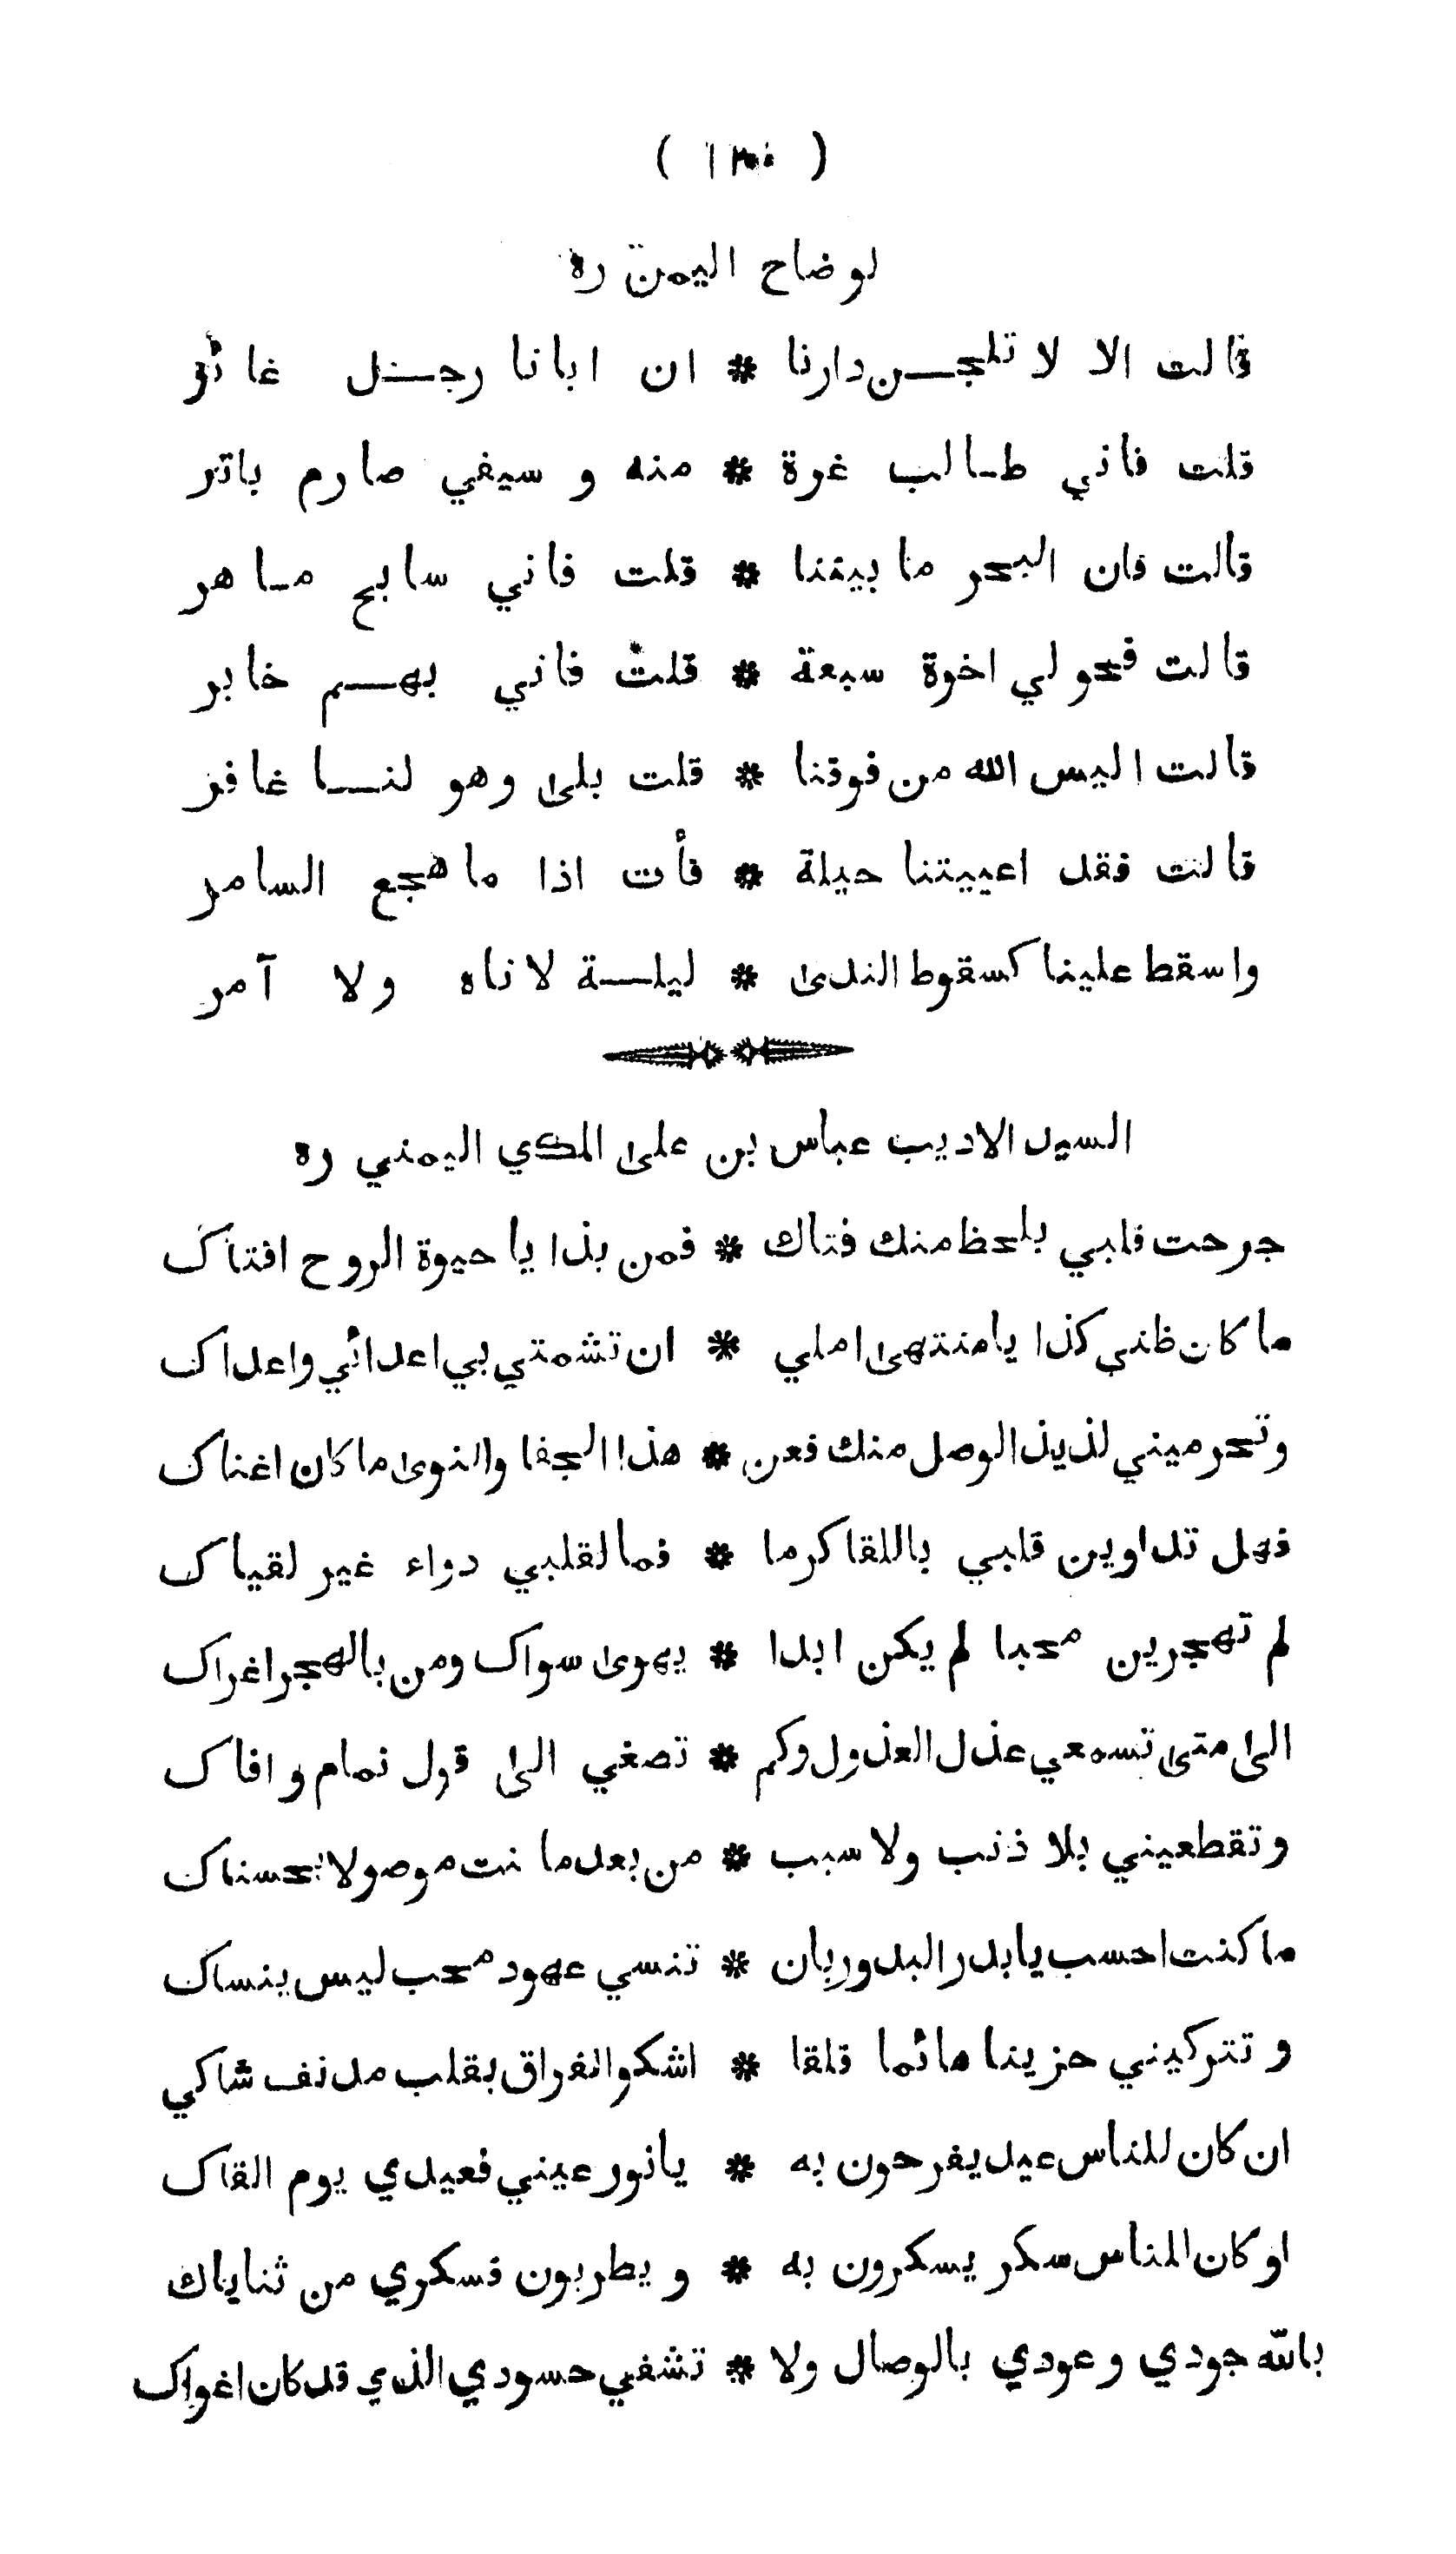 لوضاح اليمن ره
قالت الا لا تلجن دارنا * ان ابانا رجل غائر
قلت فاني طالب غرة * منه و سيفي صارم باتر
قالت فان البحر ما بيننا * قلت فاني سابح ماهر
قالت فحولي اخوة سبعة * قلت فاني بهم خابر
قالت اليس الله من فوقنا * قلت بلى وهو لنا غافر
قالت فقد اعييتنا حيلة * فأت اذا ما هجع السامر
واسقط علينا كسقوط الندى * ليلة لا ناه ولا آمر
السيد الاديب عباس بن على المكي اليمني ره
جرحت قلبي بلحظ منك فتاك * فمن بذا يا حيوة الروح افتاك
ما كان ظني كذا يا منتهى املي * ان تشمتي بي اعدائي واعداك
وتحرميني لذيذ الوصل منك فعن * هذا الجفا والنوى ما كان اغناك
فهل تداوين قلبي باللقا كرما * فما لقلبي دواء غير لقياك
لم تهجرين محبا لم يكن ابدا * يهوى سواك ومن بالهجر اغراك
الى متى تسمعي عذل العذول وكم * تصغي الى قول نمام وافاك
وتقطعيني بلا ذنب ولا سبب * من بعد ما نت موصولا بحسناك
ما كنت احسب يا بدر البدور بان * تنسي عهود محب ليس ينساك
وتتركيني حزينا هائما قلقا * اشكو الفراق بقلب مدنف شاكي
ان كان للناس عيد يفرحون به * يا نور عيني فعيدي يوم القاك
او كان للناس سكر يسكرون به * ويطربون فسكري من ثناياك
بالله جودي وعودي بالوصال ولا * تشفي حسودي الذي قد كان اغواك